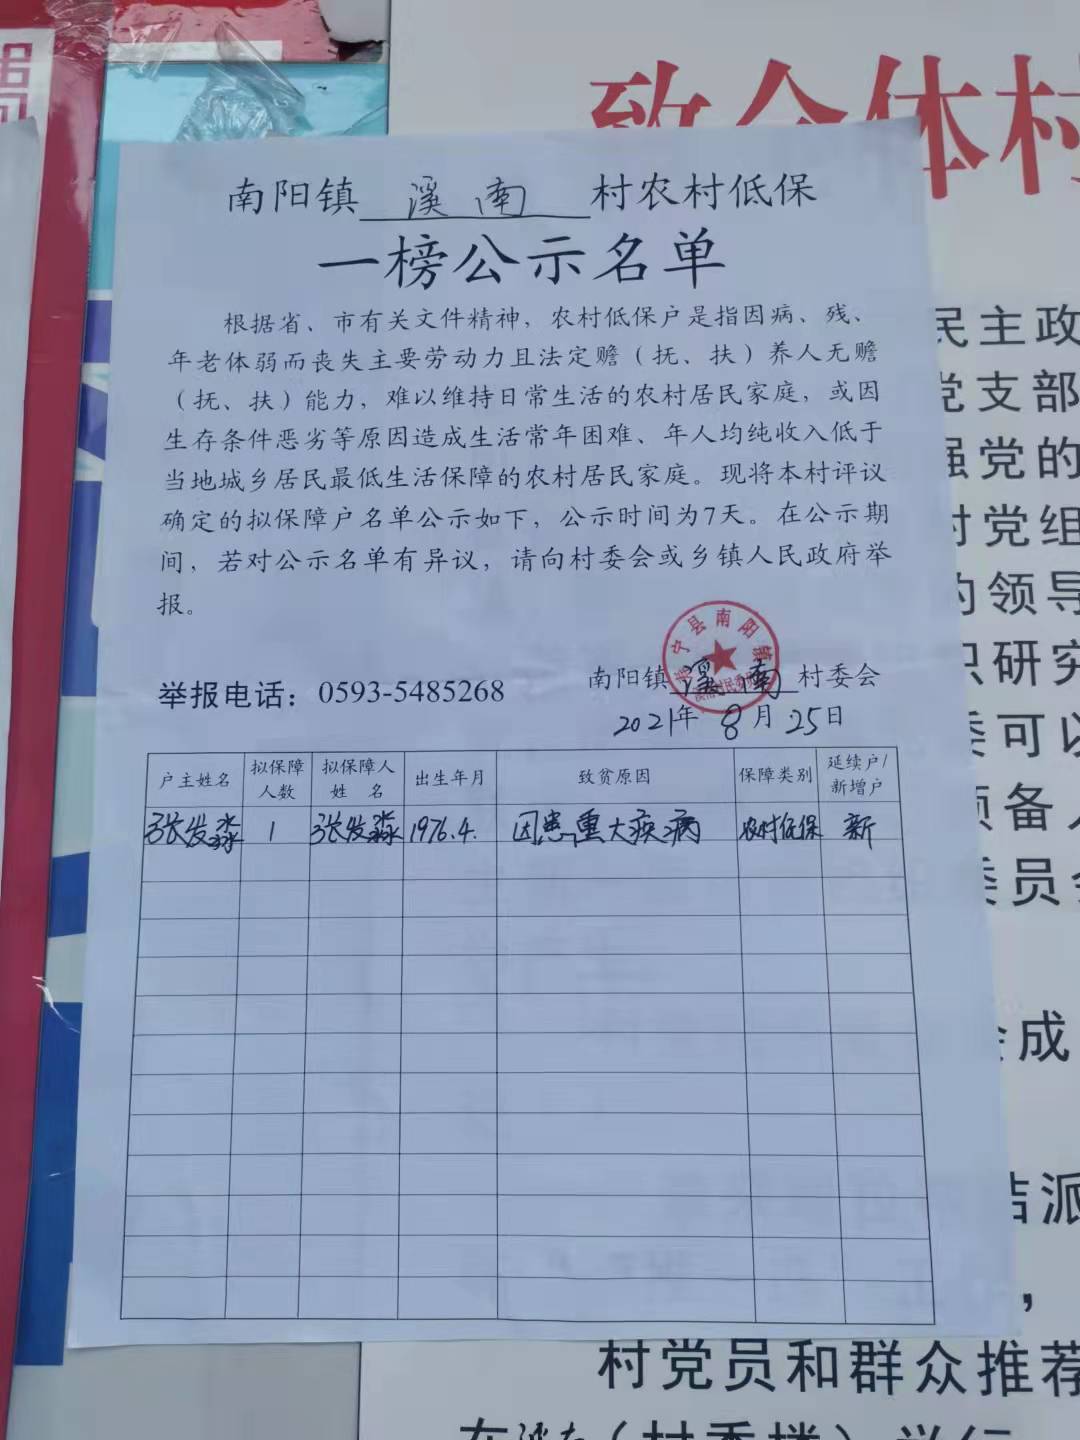 致全体村
南阳镇 溪南 村农村低保
一榜公示名单
根据省、市有关文件精神，农村低保户是指因病、残、
年老体弱而丧失主要劳动力且法定赡（抚、扶）养人无赡
（抚、扶）能力，难以维持日常生活的农村居民家庭，或因
生存条件恶劣等原因造成生活常年困难、年人均纯收入低于
当地城乡居民最低生活保障的农村居民家庭。现将本村评议
确定的拟保障户名单公示如下，公示时间为7天。在公示期
间，若对公示名单有异议，请向村委会或乡镇人民政府举
报。
举报电话：0593-5485268
南阳镇 溪南 村委会
2021年 8月25日
宁县南阳镇
户主姓名 拟保障人数 拟保障人姓名 出生年月 致贫原因 保障类别 延续户/新增户
张发淼 1 张发淼 1976.4. 因患重大疾病 农村低保 新
民主政
党支部
强党的
村党组
的领导
识研究
委可以
预备人
委员会
会成
结派
，
村党员和群众推荐